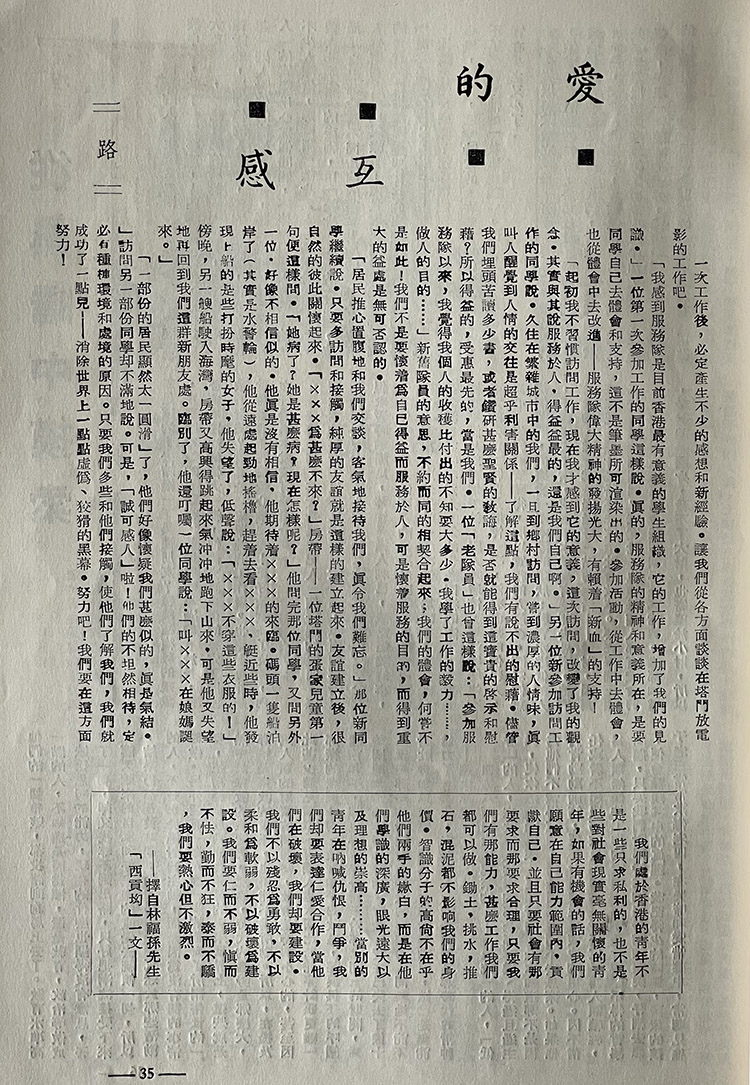 愛的互感
路
一次工作後，必定產生不少的感想和新經驗。讓我們從各方面談談在塔門放電
影的工作吧。
「我感到服務隊是目前香港最有意義的學生組織，它的工作，增加了我們的見
識。」一位第一次參加工作的同學這樣說。眞的，服務隊的精神和意義所在，是要
同學自己去體會和支持，這不是筆墨所可渲染出的。參加活動，從工作中去體會，
也從體會中去改進——服務隊偉大精神的發揚光大，有賴着「新血」的支持！
「起初我不習慣訪問工作，現在我才感到它的意義，這次訪問，改變了我的觀
念。其實與其說服務於人，得益益最的，還是我們自己啊。」另一位新參加訪問工
作的同學說。久住在繁雜城市中的我們，一旦到鄉村訪問，嘗到濃厚的人情味，眞
叫人醒覺到人情的交往是超乎利害關係——了解這點，我們有說不出的慰藉。儘管
我們埋頭苦讀多少書，或者鑽研甚麼聖賢的敎誨，是否就能得到這寶貴的啓示和慰
藉？所以得益的，受惠最先的，當是我們。一位「老隊員」也曾這樣說：「參加服
務隊以來，我覺得我個人的收穫比付出的不知要大多少。我學了工作的毅力……，
做人的目的……」新舊隊員的意思，不約而同的相契合起來；我們的體會，何嘗不
是如此！我們不是要懷着爲自己得益而服務於人，可是懷帶服務的目的，而得到重
大的益處是無可否認的。
「居民推心置腹地和我們交談，客氣地接待我們，眞令我們難忘。」那位新同
學繼續說。只要多訪問和接觸，純厚的友誼就是這樣的建立起來。友誼建立後，很
自然的彼此關懷起來。「×××爲甚麼不來？」房帶——一位塔門的張家兒童第一
句便這樣問。「她病了？她是甚麼病？現在怎樣呢？」他問完那位同學，又問另外
一位，好像不相信似的。他眞是沒有相信，他期待着×××的來臨。碼頭一隻船泊
岸了（其實是水警輪），他從遠處起勁地搖櫓，趕着去看×××，艇近些時，他發
現上船的是些打扮時髦的女子。他失望了，低聲說：「×××不穿這些衣服的！」
傍晚，另一艘船駛入海灣，房帶又高興得跳起來氣冲冲地跑下山來。可是他又失望
地再回到我們這群新朋友處。臨別了，他還叮囑一位同學說：「叫×××在娘媽誕
來。」
「一部份的居民顯然太「圓滑」了，他們好像懷疑我們甚麼似的，眞是氣結。
」訪問另一部份同學却不滿地說。可是，「誠可感人」啦！他們的不坦然相待，定
必有種種環境和處境的原因。只要我們多些和他們接觸，使他們了解我們，我們就
成功了一點兒——消除世界上一點點虛僞、狡猾的黑幕。努力吧！我們要在這方面
努力！
我們處於香港的青年不
是一些只求私利的，也不是
些對社會現實毫無關懷的靑
年，如果有機會的話，我們
願意在自己能力範圍內，貢
獻自己。並且只要社會有那
要求而那要求合理，只要我
們有那能力，甚麼工作我們
都可以做。鋤土，挑水，推
石，混泥都不影响我們的身
價。智識分子的高尙不在乎
他們兩手的嫩白，而是在他
們學識的深廣，眼光遠大以
及理想的崇高……當別的
青年在吶喊仇恨，鬥爭，我
們却要表達仁愛合作，當他
們在破壞，我們却要建設。
我們不以殘忍爲勇敢，不以
柔和爲軟弱，不以破壞爲建
設。我們要仁而不弱，愼而
不怯，勤而不狂，泰而不驕
，我們要熱心但不激烈。
——擇自林福孫先生
「西貢㘭」一文——
—35—